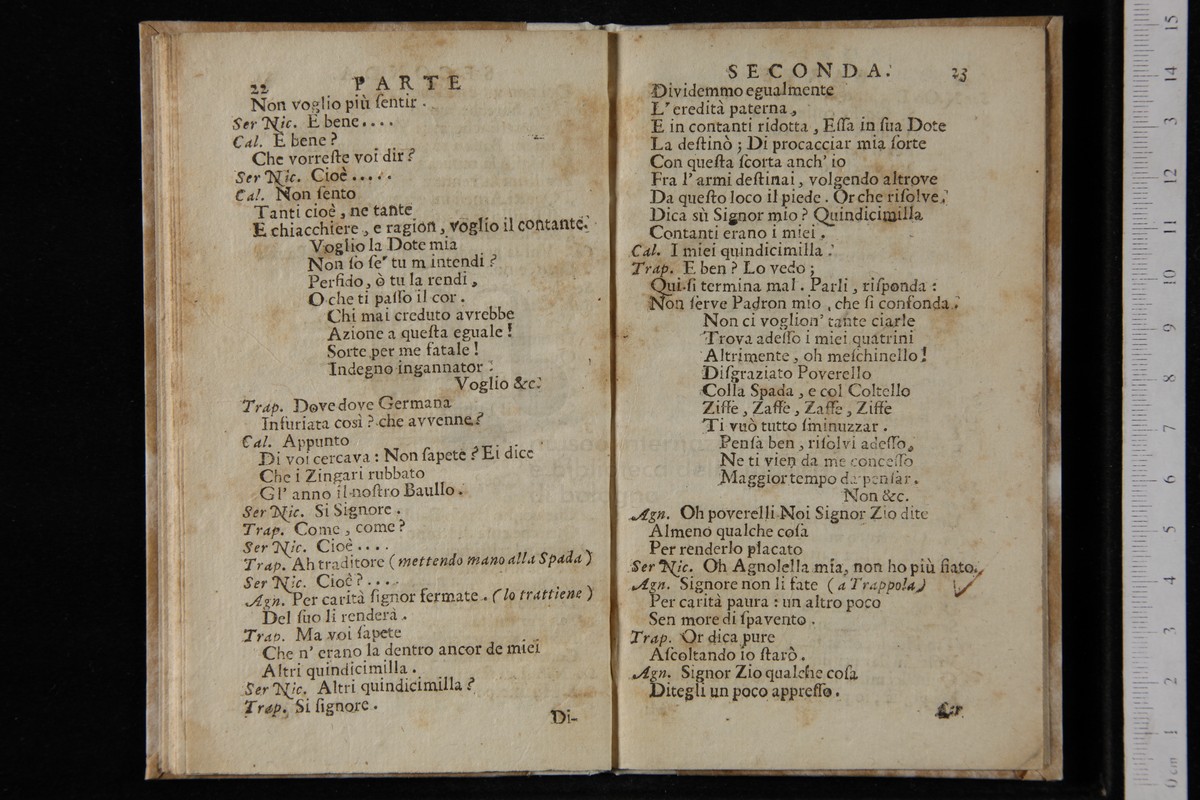 22 PARTE
Non voglio più ſentir .
Ser Nic. E bene . . . .
Cal. E bene ?
Che vorreſte voi dir ?
Ser Nic. Cioè . . . . .
Cal. Non ſento
Tanti cioè , ne tante
E chiacchiere , e ragion , voglio il contante.
Voglio la Dote mia
Non ſo ſe' tu m intendi ?
Perfido, ò tu la rendi ,
O che ti paſſo il cor .
Chi mai creduto avrebbe
Azione a queſta eguale !
Sorte per me fatale !
Indegno ingannator :
Voglio &c.
Trap. Dove dove Germana
Infuriata così ? che avvenne ?
Cal. Appunto
Di voi cercava : Non ſapete ? Ei dice
Che i Zingari rubbato
Gl' anno il noſtro Baullo .
Ser Nic. Si Signore .
Trap. Come , come ?
Ser Nic. Cioè . . . .
Trap. Ah traditore ( mettendo mano alla Spada )
Ser Nic. Cioè ? . . . .
Agn. Per carità ſignor fermate . ( lo trattiene )
Del ſuo li renderà .
Trap. Ma voi ſapete
Che n' erano là dentro ancor de miei
Altri quindicimilla .
Ser Nic. Altri quindicimilla ?
Trap. Si ſignore .
Di-
SECONDA. 23
Dividemmo egualmente
L' eredità paterna ,
E in contanti ridotta , Eſſa in ſua Dote
La deſtinò ; Di procacciar mia ſorte
Con queſta ſcorta anch' io
Fra l' armi deſtinai , volgendo altrove
Da queſto loco il piede . Or che riſolve,
Dica sù Signor mio ? Quindicimilla
Contanti erano i miei .
Cal. I miei quindicimilla .
Trap. E ben ? Lo vedo ;
Qui ſi termina mal . Parli , riſponda :
Non ſerve Padron mio , che ſi confonda .
Non ci voglion' tante ciarle
Trova adeſſo i miei quatrini
Altrimente , oh meſchinello !
Diſgraziato Poverello
Colla Spada , e col Coltello
Ziffe , Zaffe , Zaffe , Ziffe
Ti vuò tutto ſminuzzar .
Penſa ben , riſolvi adeſſo,
Ne ti vien da me conceſſo
Maggior tempo da penſar .
Non &c.
Agn. Oh poverelli Noi Signor Zio dite
Almeno qualche coſa
Per renderlo placato
Ser Nic. Oh Agnolella mia, non ho più fiato.
Agn. Signore non li fate ( a Trappola )
Per carità paura : un altro poco
Sen more di ſpavento .
Trap. Or dica pure
Aſcoltando io ſtarò .
Agn. Signor Zio qualche coſa
Ditegli un poco appreſſo .
Ser